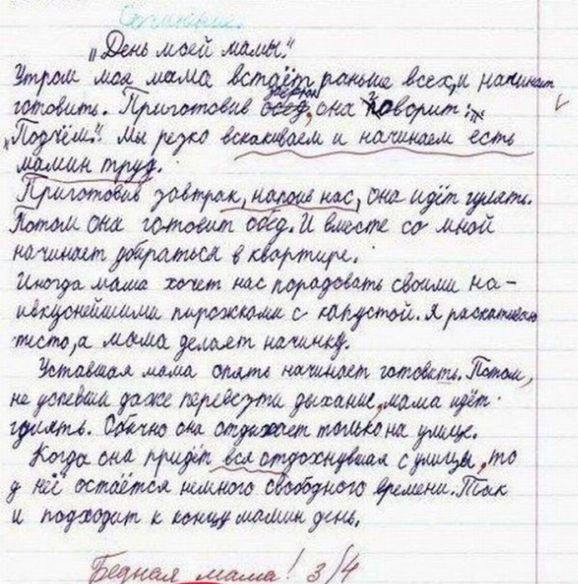 Сочинение.
„День моей мамы."
Утром моя мама встаёт раньше всех, и начинает
готовить. Приготовив завтрак обед, она говорит:
„Подъём." Мы резко вскакиваем и начинаем есть
мамин труд.
Приготовив завтрак, напоив нас, она идёт гулять.
Потом она готовит обед. И вместе со мной
начинает убираться в квартире.
Иногда мама хочет нас порадовать своими на-
ивкуснейшими пирожками с капустой. Я раскатываю
тесто, а мама делает начинку.
Уставшая мама опять начинает готовить. Потом,
не успевши даже перевезти дыхание, мама идёт
гулять. Обычно она отдыхает только на улице.
Когда она придёт вся отдохнувшая с улицы, то
у неё остаётся немного свободного времени. Так
и подходит к концу мамин день.
Бедная мама! 3/4